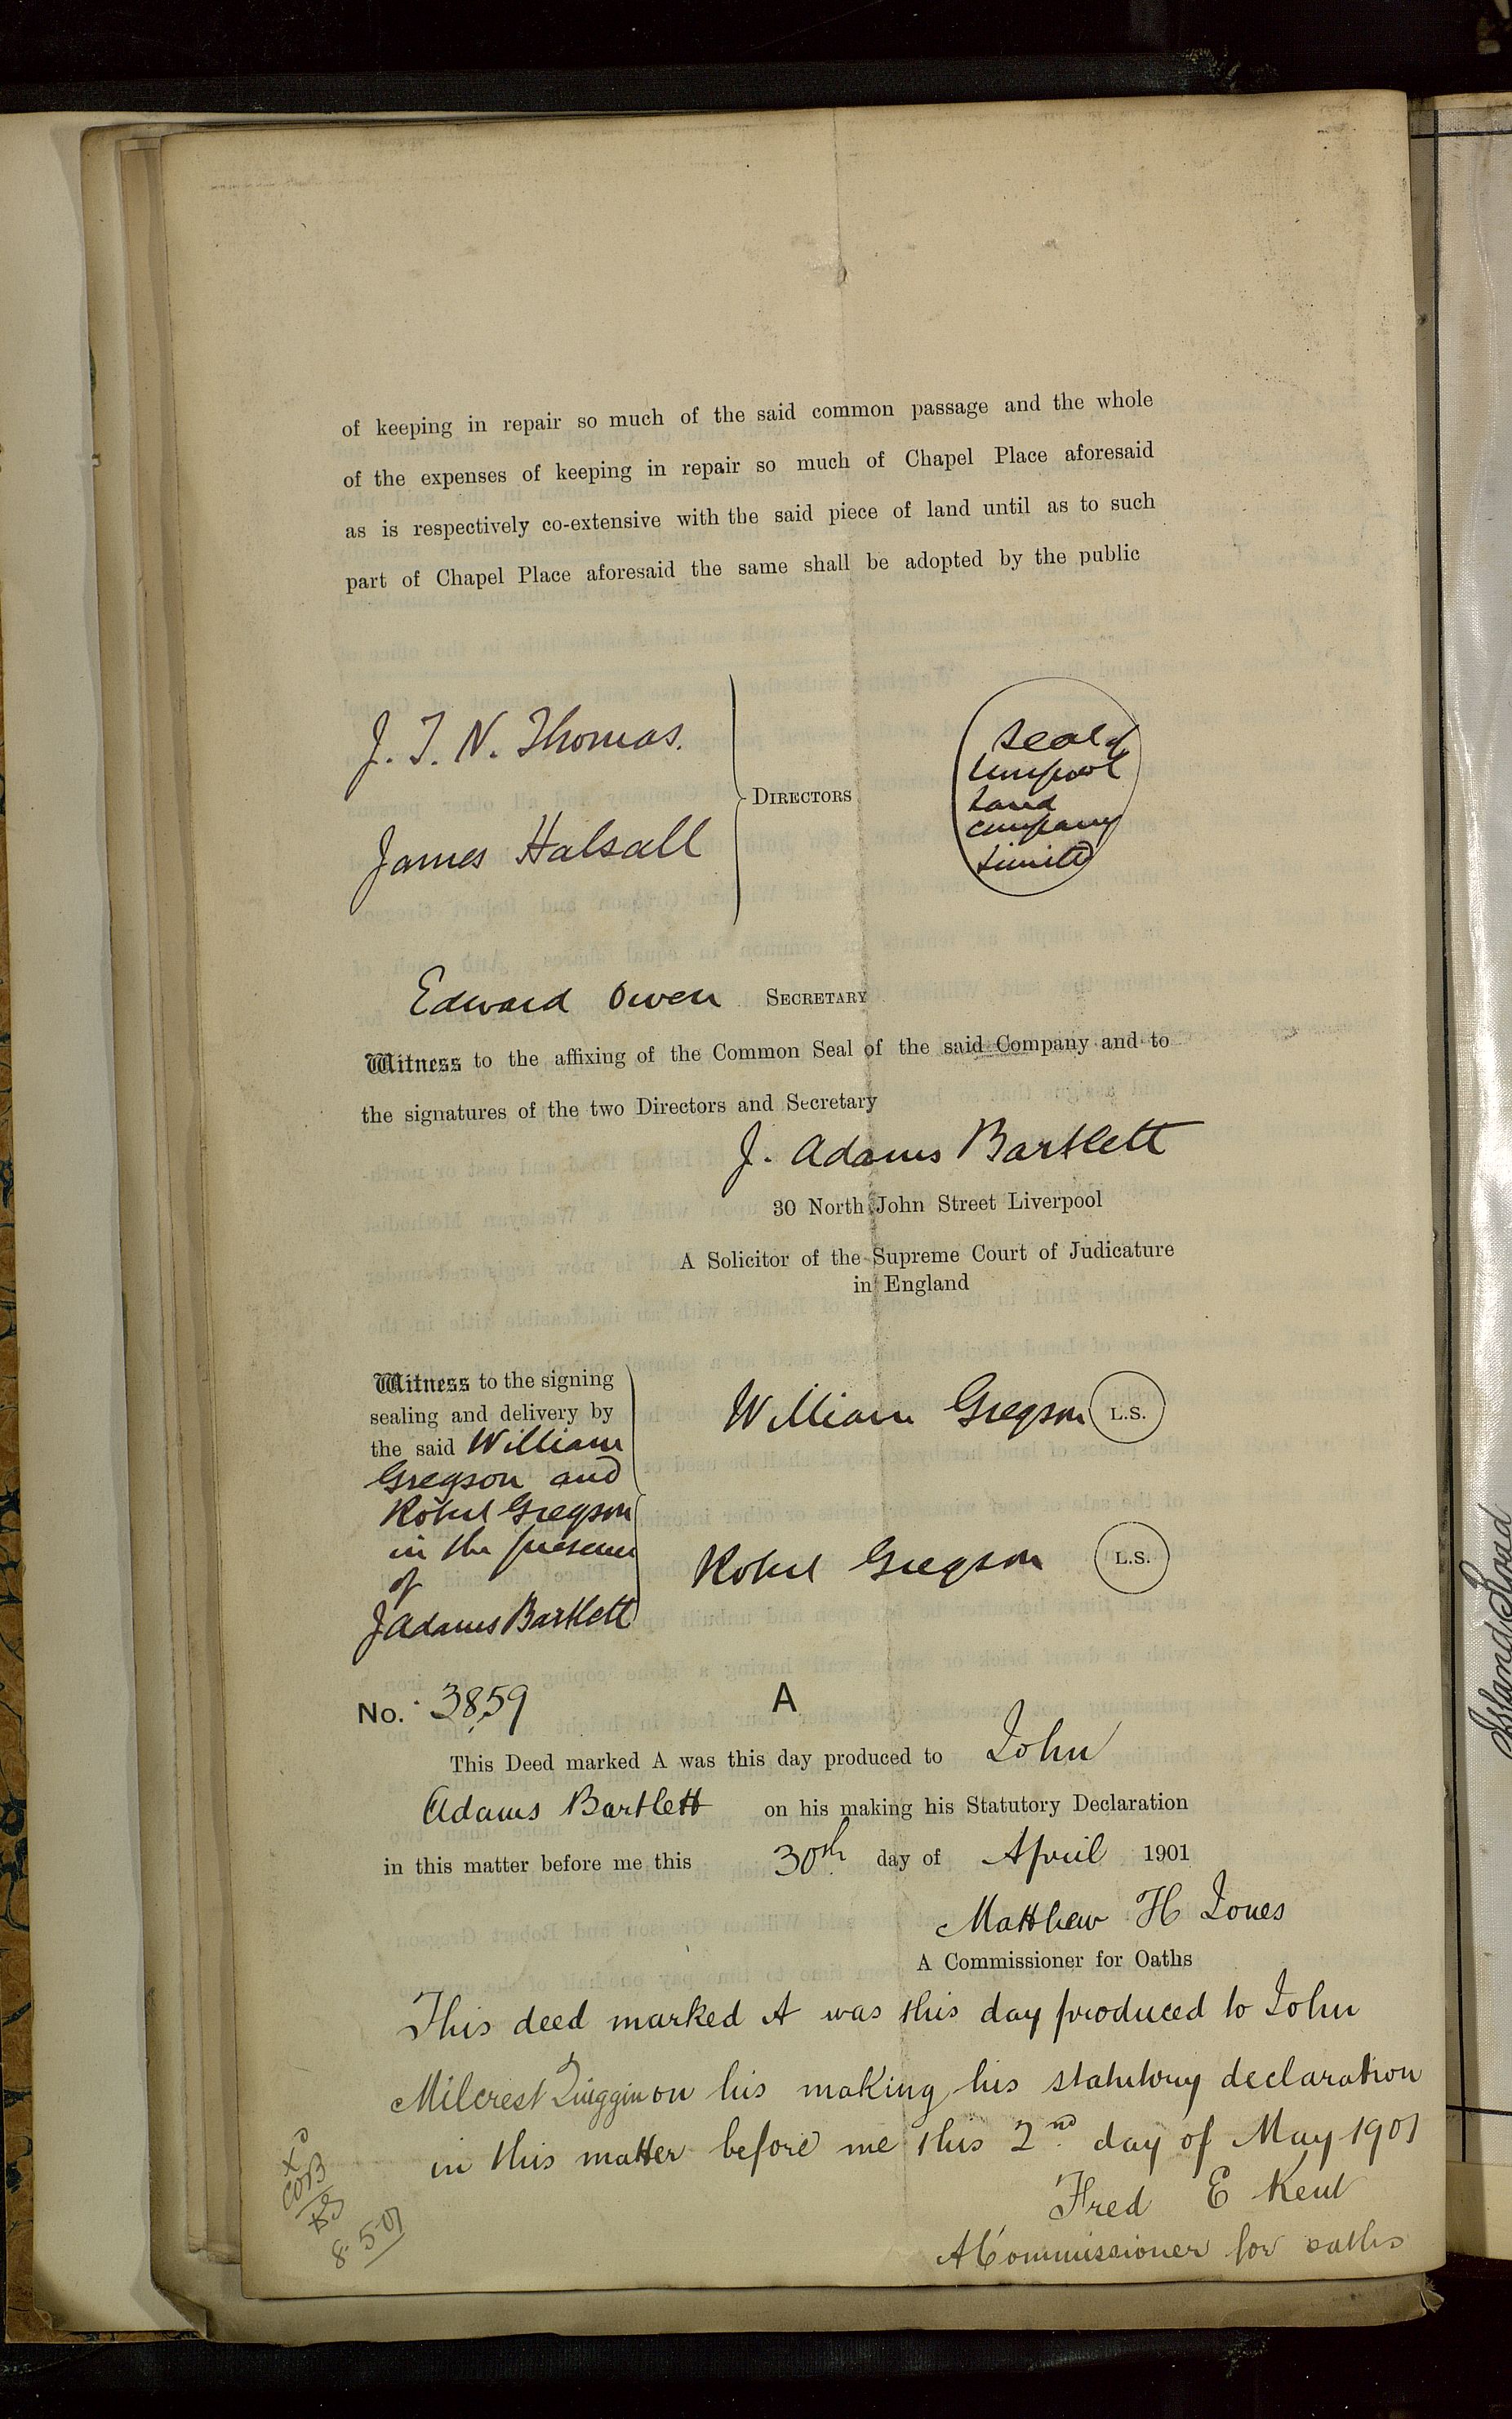 of keeping in repair so much of the said common passage and the whole
of the expenses of keeping in repair so much of Chapel Place aforesaid
as is respectively co-extensive with the said piece of land until as to such
part of Chapel Place aforesaid the same shall be adopted by the public
J. T. N. Thomas.
James Halsall
DIRECTORS
Seal of
Liverpool
Land
Company
Limited
Edward Owen SECRETARY
Witness to the affixing of the Common Seal of the said Company and to
the signatures of the two Directors and Secretary
J. Adams Bartlett
30 North John Street Liverpool
A Solicitor of the Supreme Court of Judicature
in England
Witness to the signing
sealing and delivery by
the said William
Gregson and
Robert Gregson
in the presence
of
J Adams Bartlett
William Gregson L.S.
Robert Gregson L.S.
No. 3859 A
This Deed marked A was this day produced to John
Adams Bartlett on his making his Statutory Declaration
in this matter before me this 30th day of April 1901
Matthew H Jones
A Commissioner for Oaths
This deed marked A was this day produced to John
Milcrest Quiggin on his making his statutory declaration
in this matter before me this 2nd day of May 1901
Fred E Kent
A Commissioner for oaths
8.5.01
Island Road